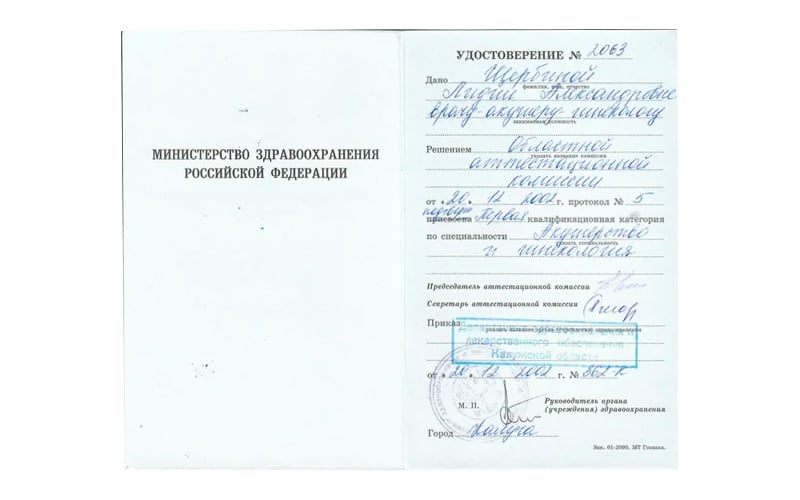 МИНИСТЕРСТВО ЗДРАВООХРАНЕНИЯ
РОССИЙСКОЙ ФЕДЕРАЦИИ
УДОСТОВЕРЕНИЕ № 2063
Дано Щербиной
фамилия, имя, отчество
Лидии Александровне
врачу-акушеру-гинекологу
занимаемая должность
Решением Областной
указать название комиссии
аттестационной
комиссии
от «20» 12 2002 г. протокол № 5
подтверж
присвоена Первая квалификационная категория
по специальности Акушерство
указать специальность
и гинекология
Председатель аттестационной комиссии
Секретарь аттестационной комиссии
Приказ
указать название органа (учреждения) здравоохранения
Департамент здравоохранения и
лекарственного обеспечения
Калужской области
от «20» 12 2002 г. № 362-К
М. П.
Руководитель органа
(учреждения) здравоохранения
Город Калуга
Зак. 01-2095. МТ Гознака.